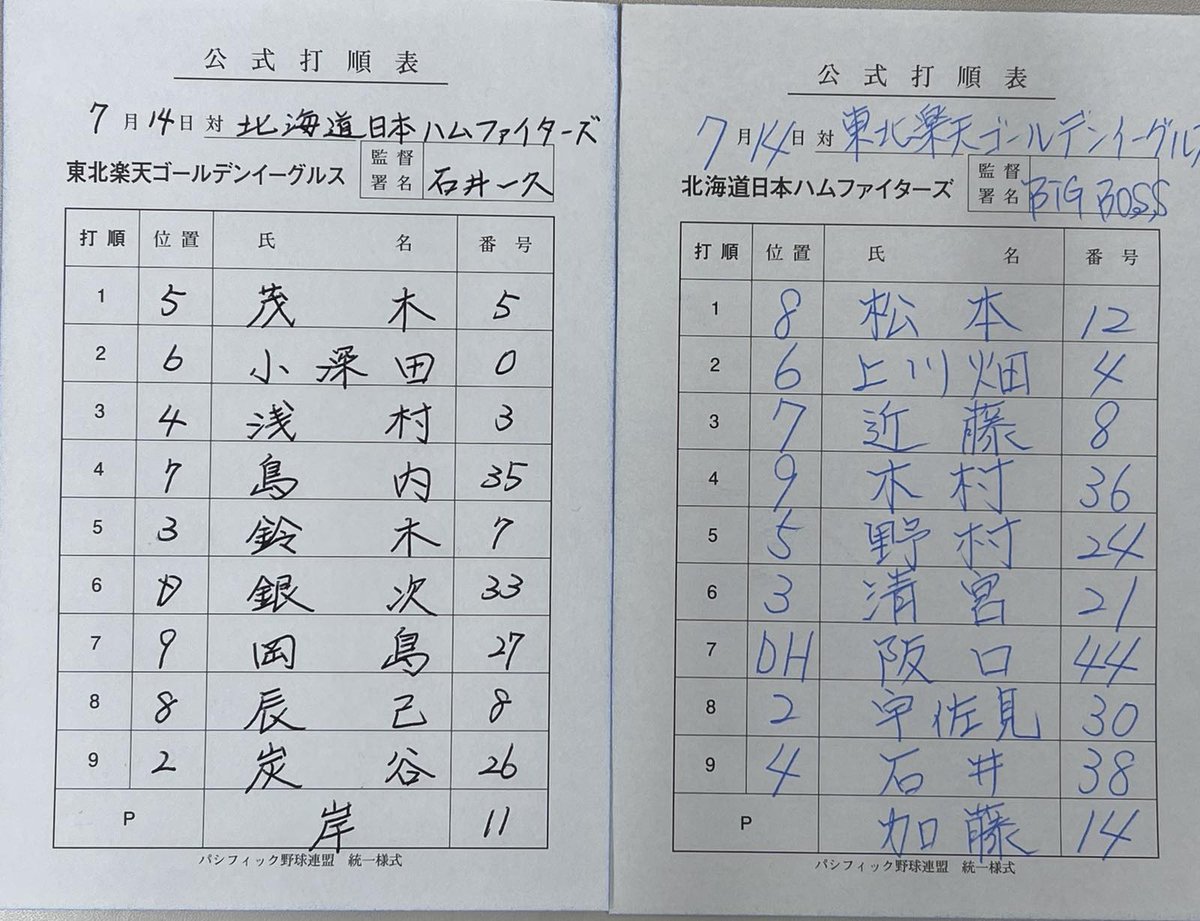 公式打順表
7月14日 対 北海道日本ハムファイターズ
東北楽天ゴールデンイーグルス 監督署名 石井一久
打順 位置 氏名 番号
1 5 茂木 5
2 6 小深田 0
3 4 浅村 3
4 7 島内 35
5 3 鈴木 7
6 銀次 33
7 9 岡島 27
8 8 辰己 8
9 2 炭谷 26
P 岸 11
パシフィック野球連盟 統一様式
公式打順表
7月14日 対 東北楽天ゴールデンイーグル
北海道日本ハムファイターズ 監督署名 BIG BOSS
打順 位置 氏名 番号
1 8 松本 12
2 6 上川畑 4
3 7 近藤 8
4 9 木村 36
5 5 野村 24
6 3 清宮 21
7 DH 阪口 44
8 2 宇佐見 30
9 4 石井 38
P 加藤 14
パシフィック野球連盟 統一様式